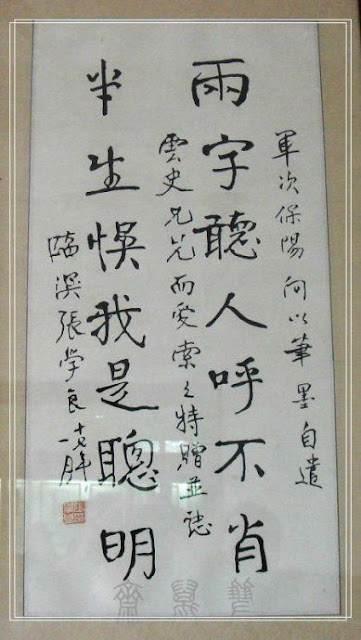 軍次保陽間以筆墨自遣
兩字聽人呼不肖
雲史兄見而愛索之特贈並誌
半生悞我是聰明
臨溟張学良十七年一月